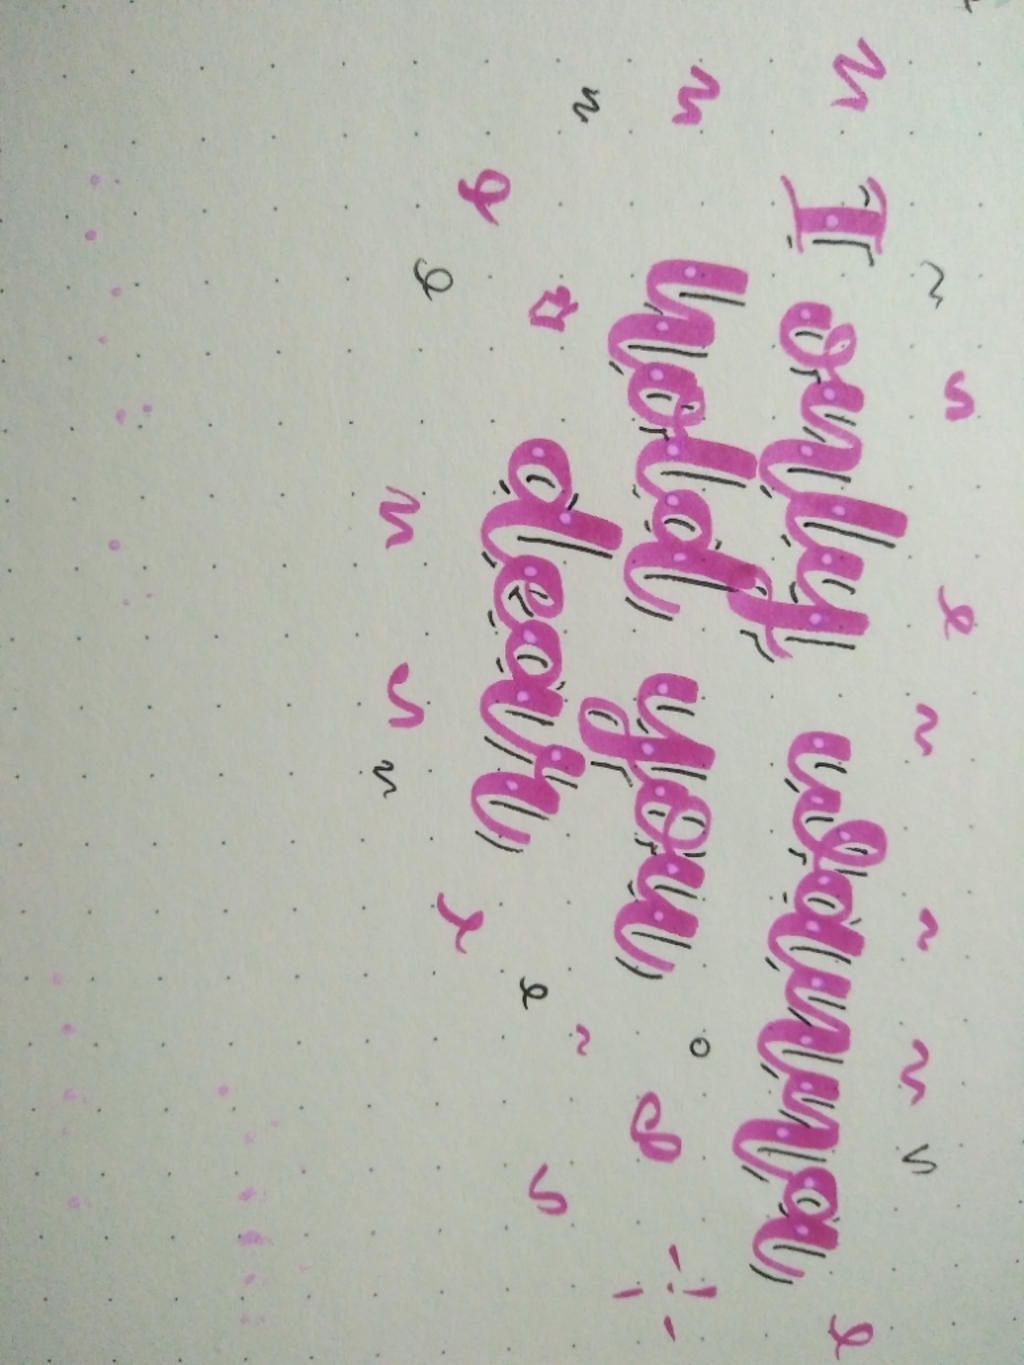 I only wanna
hold you
dear